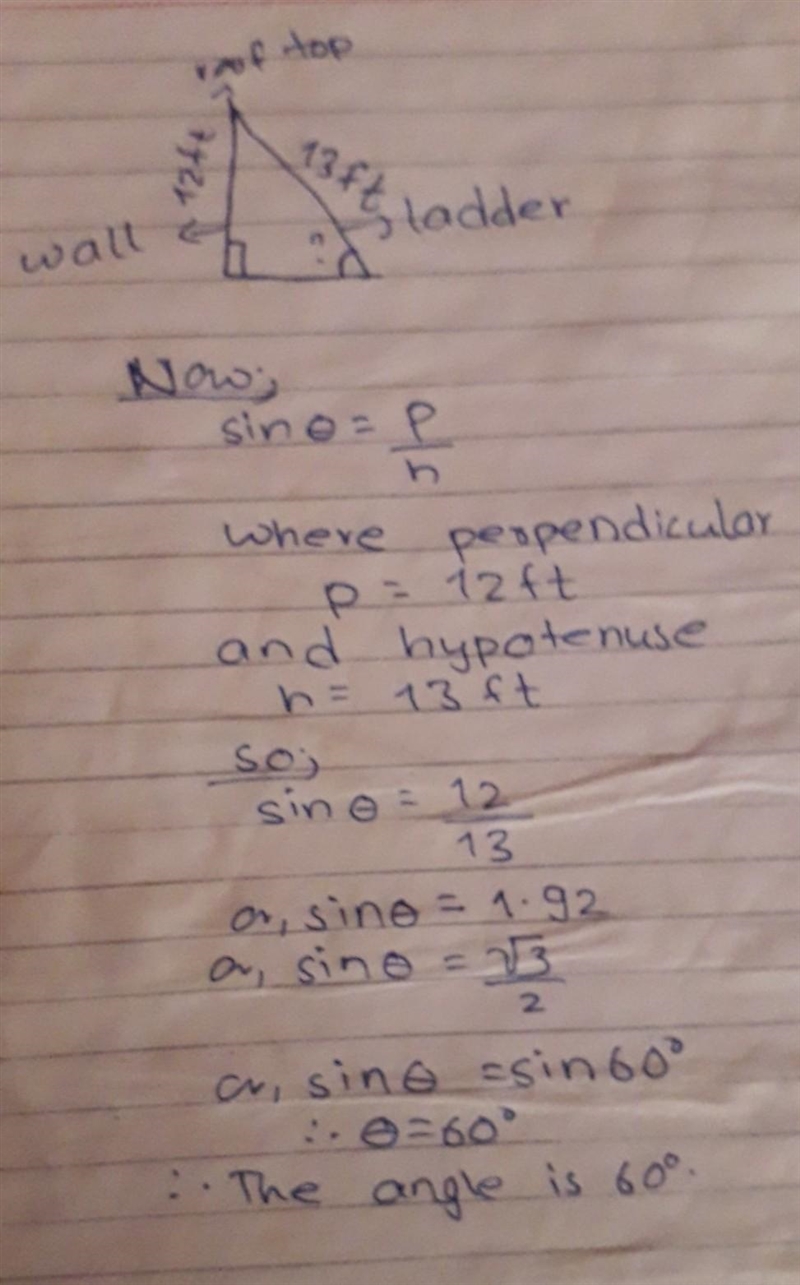 roof top
12ft
13ft
wall
ladder
?
Now;
sinθ = p/h
where perpendicular
p = 12ft
and hypotenuse
h = 13ft
so;
sinθ = 12/13
or, sinθ = 1.92
or, sinθ = √3/2
or, sinθ = sin60°
∴ θ = 60°
∴ The angle is 60°.